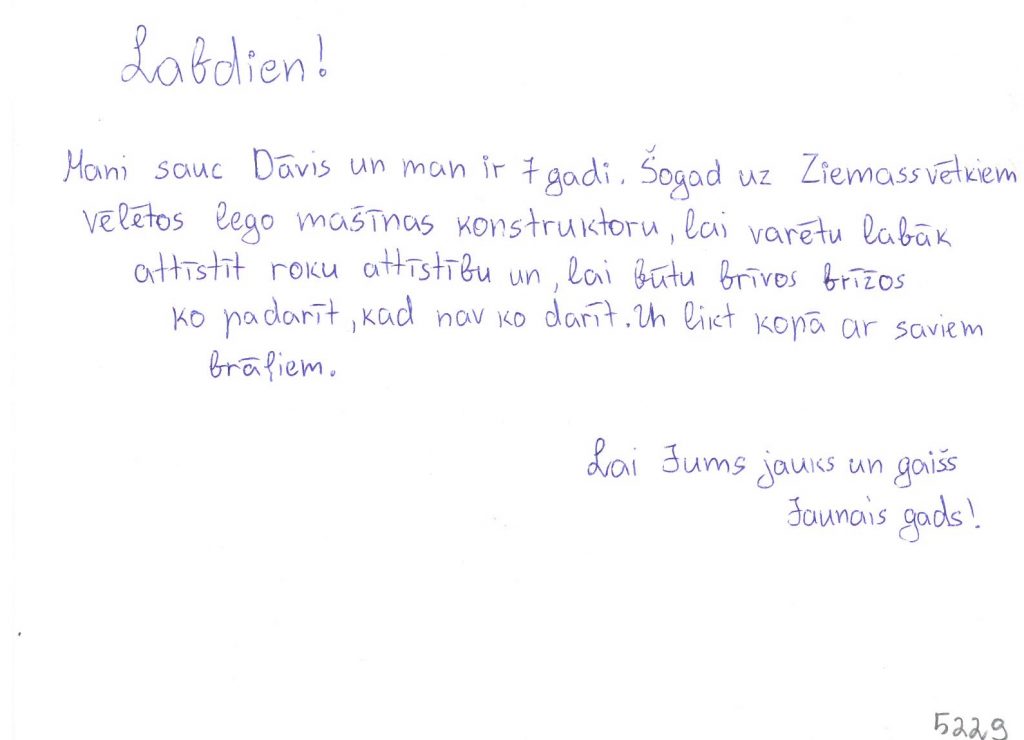 Labdien!
Mani sauc Dāvis un man ir 7 gadi. Šogad uz Ziemassvētkiem
vēlētos lego mašīnas konstruktoru, lai varētu labāk
attīstīt roku attīstību un, lai būtu brīvos brīžos
ko padarīt, kad nav ko darīt. Un likt kopā ar saviem
brāļiem.
Lai Jums jauks un gaišs
Jaunais gads!
5229